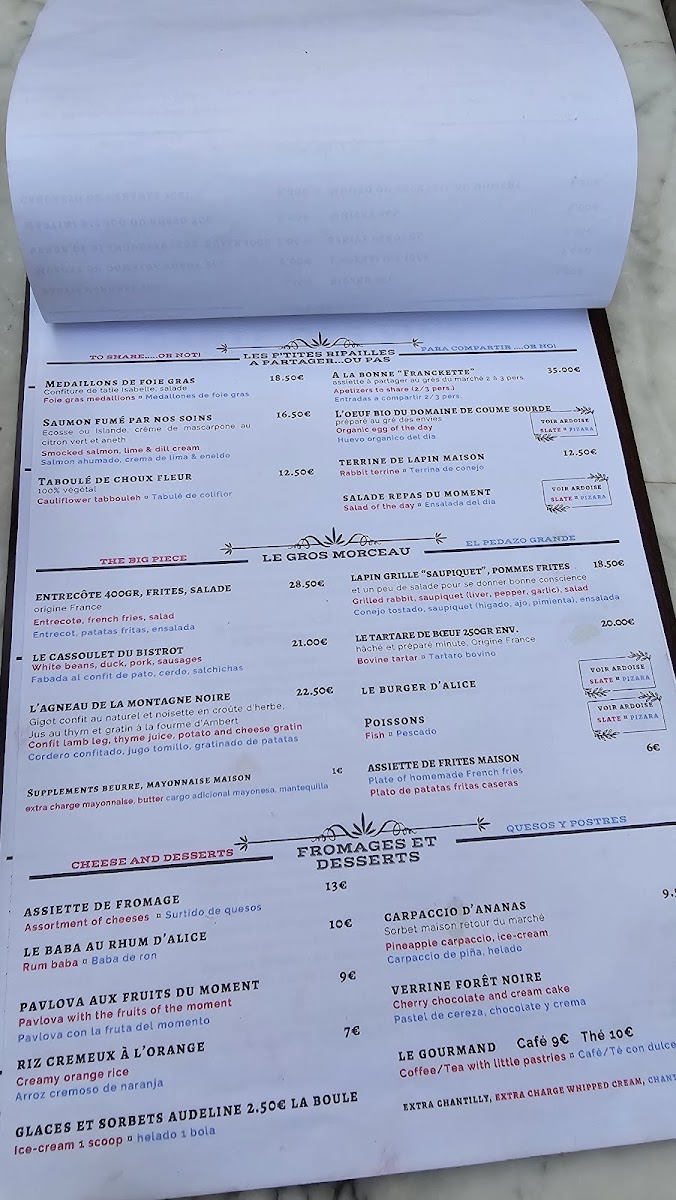 TO SHARE.....OR NOT!
LES P'TITES RIPAILLES
A PARTAGER...OU PAS
PARA COMPARTIR ....OR NO!
MEDAILLONS DE FOIE GRAS 18.50€
Confiture de tatie Isabelle, salade
Foie gras medallions ¤ Medallones de foie gras
SAUMON FUMÉ PAR NOS SOINS 16.50€
Ecosse ou Islande, crème de mascarpone au
citron vert et aneth
Smocked salmon, lime & dill cream
Salmon ahumado, crema de lima & eneldo
TABOULÉ DE CHOUX FLEUR 12.50€
100% végétal
Cauliflower tabbouleh ¤ Tabulé de coliflor
A LA BONNE "FRANCKETTE" 35.00€
assiette à partager au grès du marché 2 à 3 pers.
Apetizers to share (2/3 pers.)
Entradas a compartir 2/3 pers.
L'OEUF BIO DU DOMAINE DE COUME SOURDE
préparé au gré des envies
Organic egg of the day
Huevo organico del dia
VOIR ARDOISE
SLATE ¤ PIZARA
TERRINE DE LAPIN MAISON 12.50€
Rabbit terrine ¤ Terrina de conejo
SALADE REPAS DU MOMENT
Salad of the day ¤ Ensalada del dia
VOIR ARDOISE
SLATE ¤ PIZARA
THE BIG PIECE
LE GROS MORCEAU
EL PEDAZO GRANDE
ENTRECÔTE 400GR, FRITES, SALADE 28.50€
origine France
Entrecote, french fries, salad
Entrecot, patatas fritas, ensalada
LE CASSOULET DU BISTROT 21.00€
White beans, duck, pork, sausages
Fabada al confit de pato, cerdo, salchichas
L'AGNEAU DE LA MONTAGNE NOIRE 22.50€
Gigot confit au naturel et noisette en croûte d'herbe,
Jus au thym et gratin à la fourme d'Ambert
Confit lamb leg, thyme juice, potato and cheese gratin
Cordero confitado, jugo tomillo, gratinado de patatas
SUPPLEMENTS BEURRE, MAYONNAISE MAISON 1€
extra charge mayonnaise, butter cargo adicional mayonesa, mantequilla
LAPIN GRILLE "SAUPIQUET", POMMES FRITES 18.50€
et un peu de salade pour se donner bonne conscience
Grilled rabbit, saupiquet (liver, pepper, garlic), salad
Conejo tostado, saupiquet (higado, ajo, pimienta), ensalada
LE TARTARE DE BŒUF 250GR ENV. 20.00€
hâché et préparé minute, Origine France
Bovine tartar ¤ Tartaro bovino
LE BURGER D'ALICE
VOIR ARDOISE
SLATE ¤ PIZARA
POISSONS
Fish ¤ Pescado
VOIR ARDOISE
SLATE ¤ PIZARA
ASSIETTE DE FRITES MAISON 6€
Plate of homemade French fries
Plato de patatas fritas caseras
CHEESE AND DESSERTS
FROMAGES ET
DESSERTS
QUESOS Y POSTRES
ASSIETTE DE FROMAGE 13€
Assortment of cheeses ¤ Surtido de quesos
LE BABA AU RHUM D'ALICE 10€
Rum baba ¤ Baba de ron
PAVLOVA AUX FRUITS DU MOMENT 9€
Pavlova with the fruits of the moment
Pavlova con la fruta del momento
RIZ CREMEUX À L'ORANGE 7€
Creamy orange rice
Arroz cremoso de naranja
GLACES ET SORBETS AUDELINE 2.50€ LA BOULE
Ice-cream 1 scoop ¤ helado 1 bola
CARPACCIO D'ANANAS 9.
Sorbet maison retour du marché
Pineapple carpaccio, ice-cream
Carpaccio de piña, helado
VERRINE FORÊT NOIRE
Cherry chocolate and cream cake
Pastel de cereza, chocolate y crema
LE GOURMAND Café 9€ Thé 10€
Coffee/Tea with little pastries ¤ Café/Té con dulce
EXTRA CHANTILLY, EXTRA CHARGE WHIPPED CREAM, CHANT